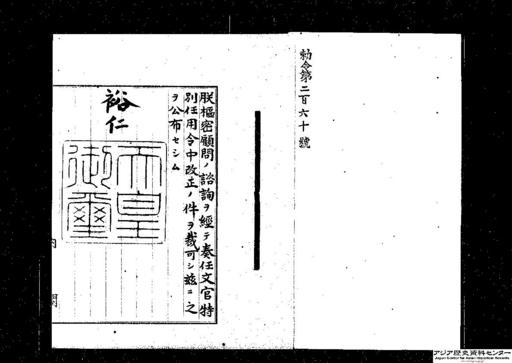 勅令第二百六十號
朕樞密顧問ノ諮詢ヲ經テ奏任文官特
別任用令中改正ノ件ヲ裁可シ茲ニ之
ヲ公布セシム
裕仁
天皇
御璽
内
閣
アジア歴史資料センター
Japan Center for Asian Historical Records